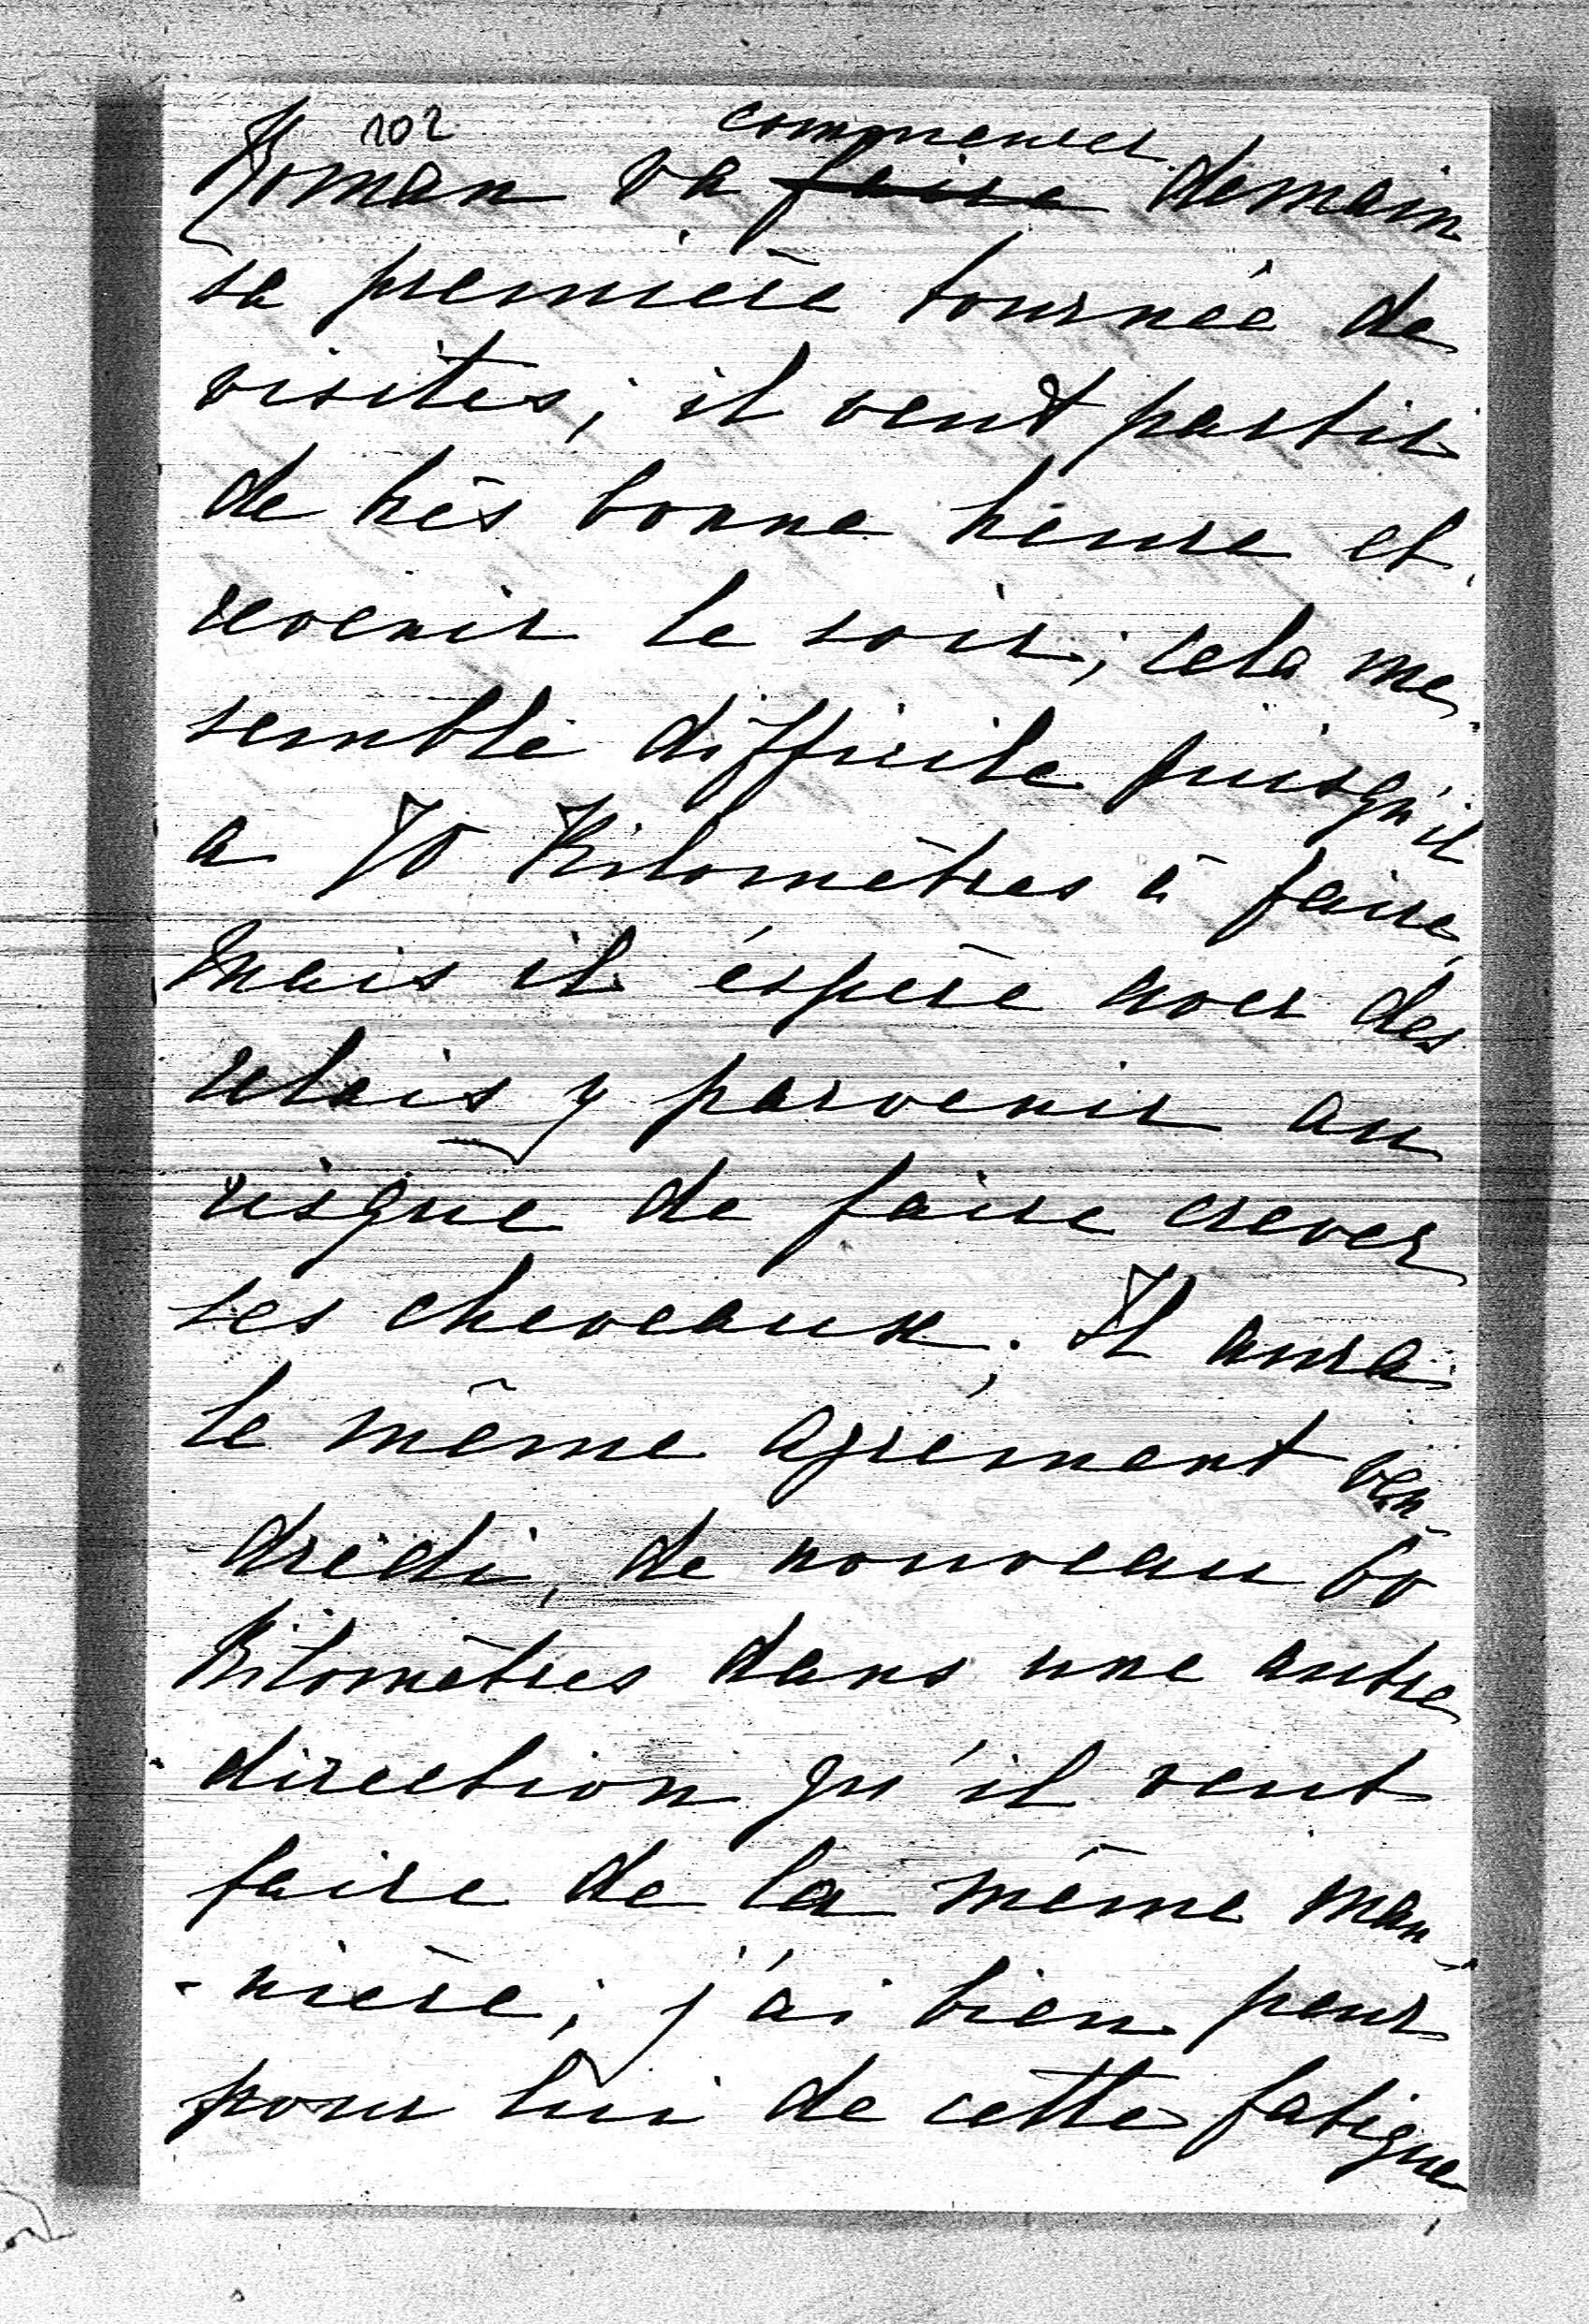 102
commencer
Roman va faire demain
sa première tournée de
visites; il veut partir
de très bonne heure et
revenir le soir; cela me
semble difficile puisqu'il
a 70 Kilomètres à faire,
mais il éspère avec des
relais y parvenir au
risque de faire crever
ses cheveaux; Il aura
le même agrement ven-
dredi, de nouveau 60
Kilomètres dans une autre
direction qu'il veut
faire de la même man-
-nière; j'ai bien peur
pour lui de cette fatigue